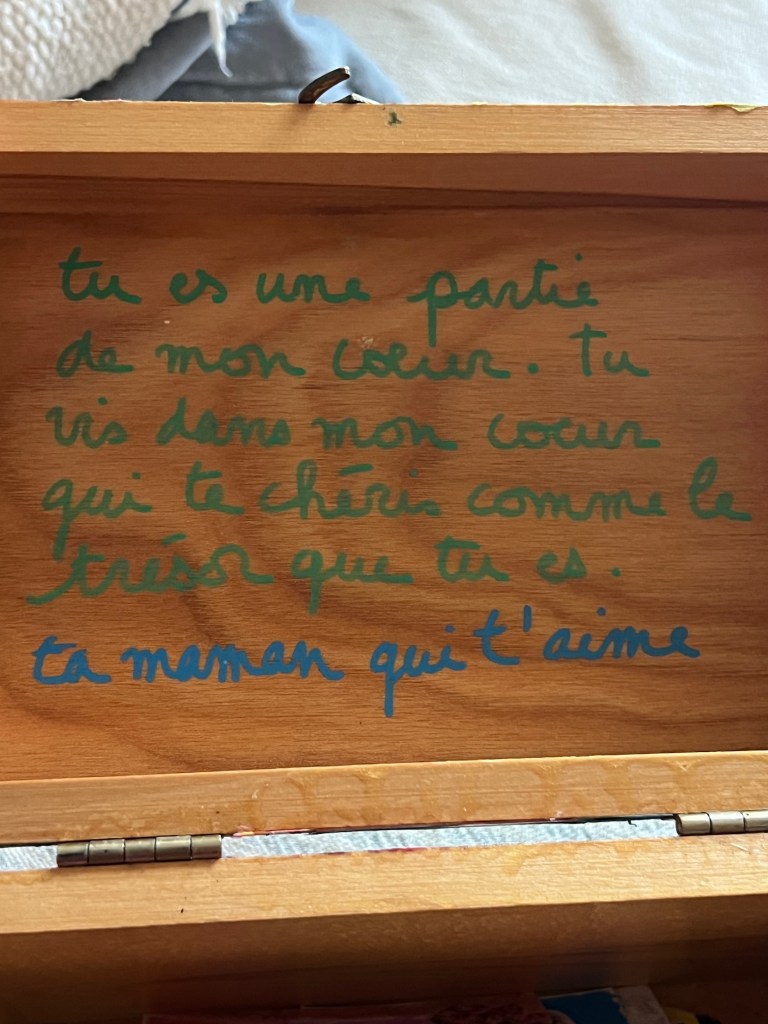 tu es une partie
de mon coeur. Tu
vis dans mon coeur
qui te chéris comme le
trésor que tu es.
ta maman qui t'aime